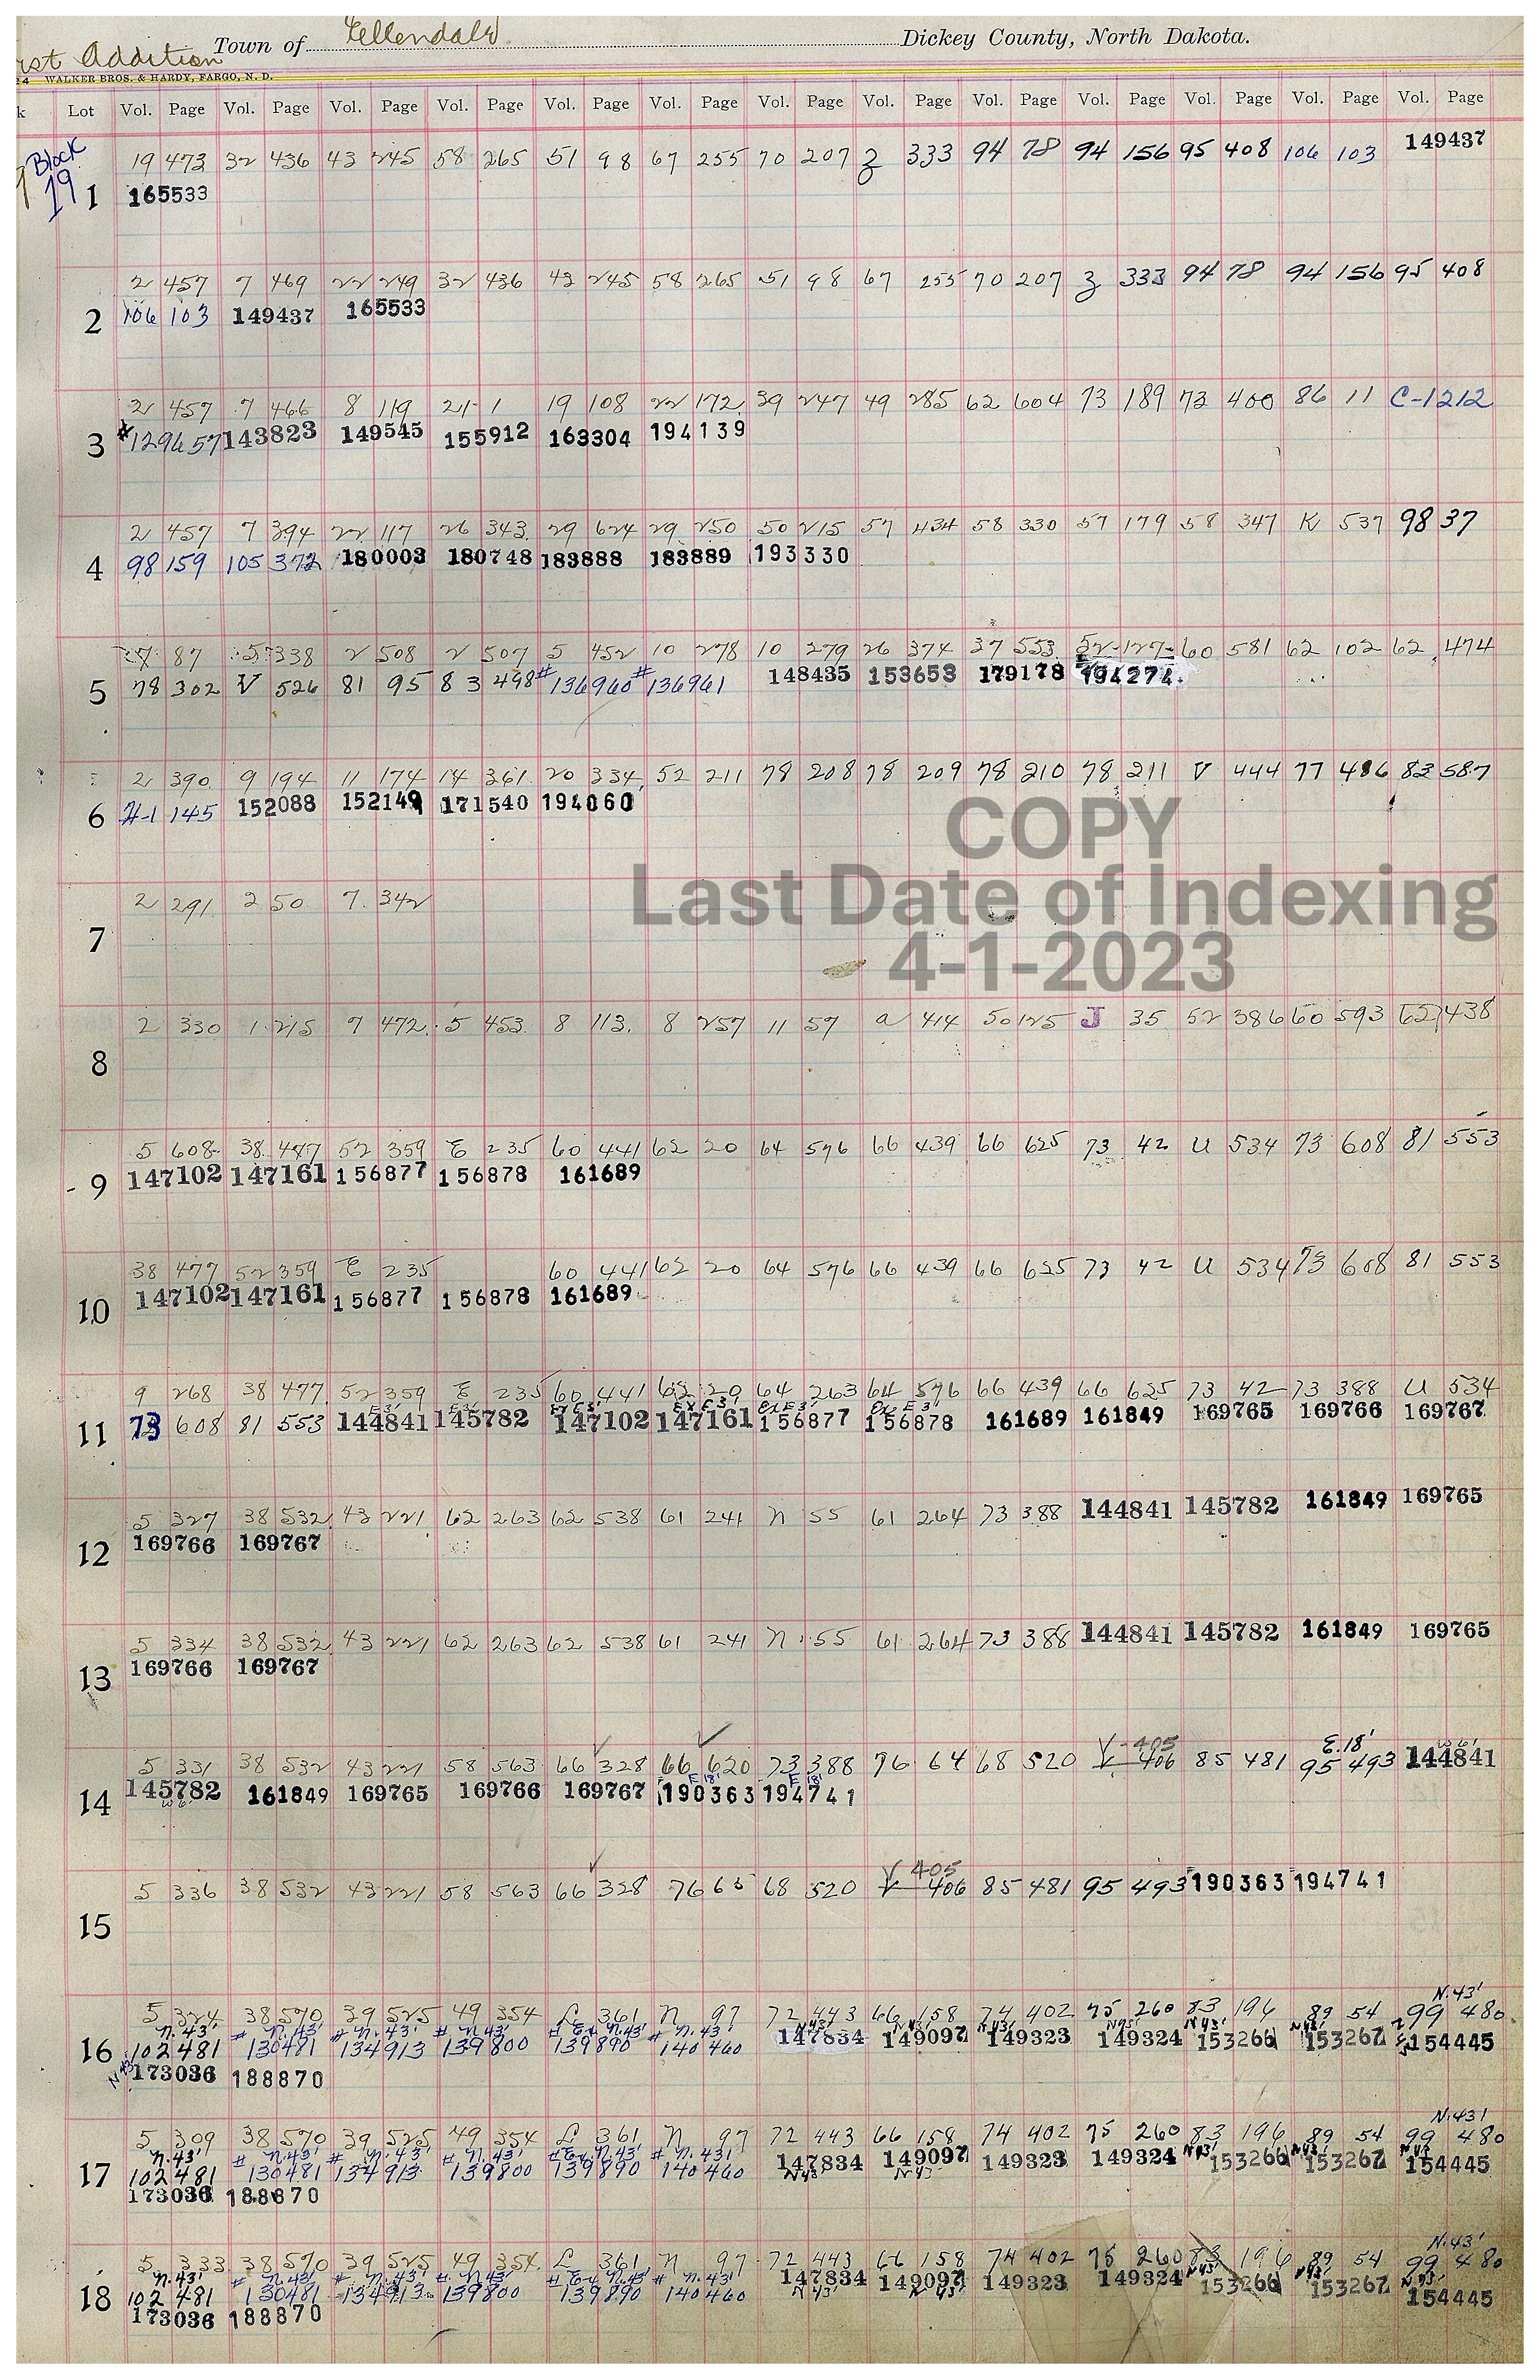 rst Addition Town of Ellendale Dickey County, North Dakota.
24 WALKER BROS. & HARDY, FARGO, N. D.
k Lot Vol. Page Vol. Page Vol. Page Vol. Page Vol. Page Vol. Page Vol. Page Vol. Page Vol. Page Vol. Page Vol. Page Vol. Page Vol. Page
Block 19
19 473 32 436 43 245 58 265 51 98 67 255 70 207 Z 333 94 78 94 156 95 408 106 103 149437
1 165533
2 457 7 469 22 249 32 436 43 245 58 265 51 98 67 255 70 207 Z 333 94 78 94 156 95 408
2 106 103 149437 165533
2 457 7 466 8 119 21 1 19 108 22 172 39 247 49 285 62 604 73 189 73 400 86 11 C-1212
3 #129657 143823 149545 155912 163304 194139
2 457 7 394 22 117 26 343 29 624 29 250 50 215 57 434 58 330 57 179 58 347 K 537 98 37
4 98 159 105 372 180003 180748 183888 183889 193330
7 87 5 338 2 508 2 507 5 452 10 278 10 279 26 374 37 553 52 127 60 581 62 102 62 474
5 78 302 V 526 81 95 83 498 #136960 #136961 148435 153653 179178 194274
2 390 9 194 11 174 14 361 20 334 52 211 78 208 78 209 78 210 78 211 V 444 77 486 83 587
6 H-1 145 152088 152149 171540 194060
COPY
Last Date of Indexing
4-1-2023
2 291 2 50 7 342
7
2 330 1 215 7 472 5 453 8 113 8 257 11 57 a 414 50 125 J 35 52 386 60 593 62 438
8
5 608 38 477 52 359 E 235 60 441 62 20 64 576 66 439 66 625 73 42 U 534 73 608 81 553
9 147102 147161 156877 156878 161689
38 477 52 359 E 235 60 441 62 20 64 576 66 439 66 625 73 42 U 534 73 608 81 553
10 147102 147161 156877 156878 161689
9 268 38 477 52 359 E 235 60 441 62 20 64 263 64 576 66 439 66 625 73 42 73 388 U 534
E 3' E 3' Ex E 3' Ex E 3' Ex E 3' Ex E 3'
11 73 608 81 553 144841 145782 147102 147161 156877 156878 161689 161849 169765 169766 169767
5 327 38 532 43 221 62 263 62 538 61 241 N 55 61 264 73 388 144841 145782 161849 169765
12 169766 169767
5 334 38 532 43 221 62 263 62 538 61 241 N 55 61 264 73 388 144841 145782 161849 169765
13 169766 169767
V-405 E.18' W 6'
5 331 38 532 43 221 58 563 66 328 66 620 73 388 76 64 68 520 V 406 85 481 95 493 144841
E 18' E 18'
14 145782 161849 169765 169766 169767 190363 194741
W 6'
V 405
5 336 38 532 43 221 58 563 66 328 76 65 68 520 V 406 85 481 95 493 190363 194741
15
N.43'
5 324 38 570 39 525 49 354 L 361 N 97 72 443 66 158 74 402 75 260 83 196 89 54 99 480
N.43' N.43' N.43' N.43' Ex N.43' N.43' N43' N43' N43' N43' N43' N43'
16 102 481 #130481 #134913 #139800 #139890 #140460 147834 149097 149323 149324 153266 153267 154445
N43' 173036 188870
N.43'
5 309 38 570 39 525 49 354 L 361 N 97 72 443 66 158 74 402 75 260 83 196 89 54 99 480
N.43' N.43' N.43' N.43' Ex N.43' N.43' N43' N43' N43'
17 102 481 #130481 #134913 #139800 #139890 #140460 147834 149097 149323 149324 153266 153267 154445
N43' N43'
173036 188870
N.43'
5 333 38 570 39 525 49 354 L 361 N 97 72 443 66 158 74 402 75 260 83 196 89 54 99 480
N.43' N.43' N.43' N.43' Ex N.43' N.43' N43' N43' N.43'
18 102 481 #130481 #134913 #139800 #139890 #140460 147834 149097 149323 149324 153266 153267 154445
N43' N43'
173036 188870